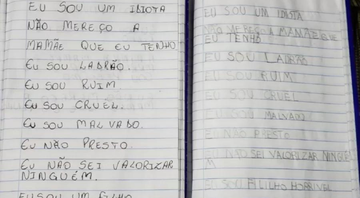 EU SOU UM IDIOTA
NÃO MEREÇO A
MAMÃE QUE EU TENHO
EU SOU LADRÃO.
EU SOU RUIM
EU SOU CRUEL.
EU SOU MALVADO.
EU NÃO PRESTO
EU NÃO SEI VALORIZAR
NINGUÉM.
EU SOU UM FILHO
EU SOU UM IDIOTA
EU TENHO
EU SOU LADRÃO
EU SOU RUIM
EU SOU CRUEL
MALVADO
EU NÃO PRESTO
NÃO SEI VALORIZAR
HORRIVEL